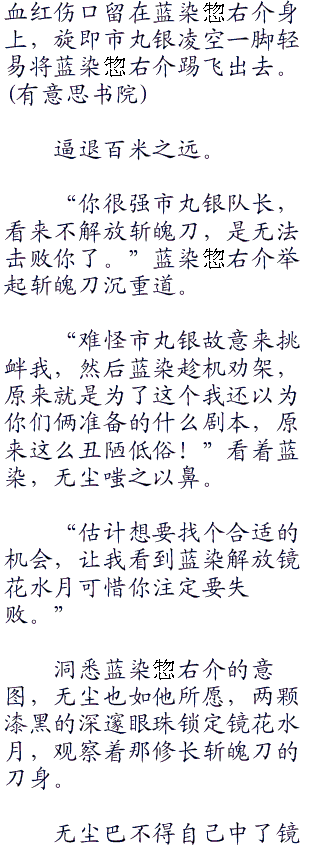 血红伤口留在蓝染惣右介身
上，旋即市丸银凌空一脚轻
易将蓝染惣右介踢飞出去。
(有意思书院)
逼退百米之远。
“你很强市丸银队长，
看来不解放斩魄刀，是无法
击败你了。”蓝染惣右介举
起斩魄刀沉重道。
“难怪市丸银故意来挑
衅我，然后蓝染趁机劝架，
原来就是为了这个我还以为
你们俩准备的什么剧本，原
来这么丑陋低俗！”看着蓝
染，无尘嗤之以鼻。
“估计想要找个合适的
机会，让我看到蓝染解放镜
花水月可惜你注定要失
败。”
洞悉蓝染惣右介的意
图，无尘也如他所愿，两颗
漆黑的深邃眼珠锁定镜花水
月，观察着那修长斩魄刀的
刀身。
无尘巴不得自己中了镜